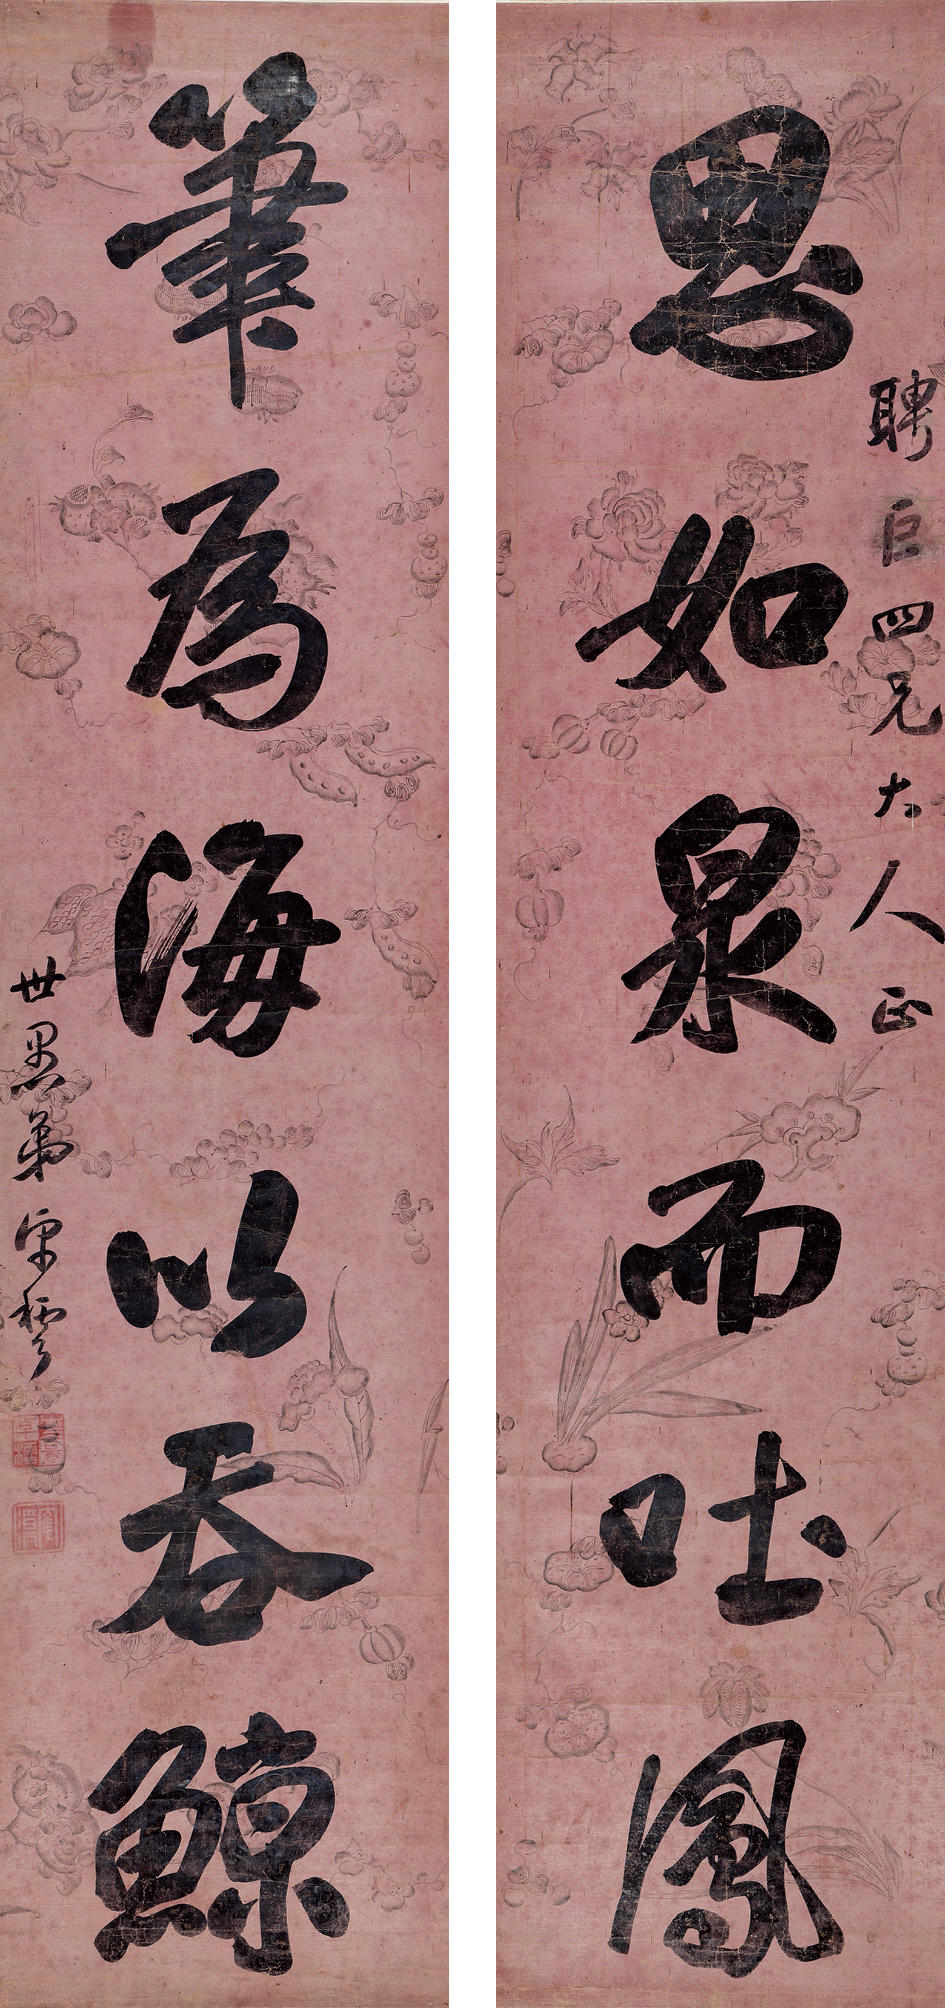 聘臣四兄大人正
思如泉而吐鳳
筆為海以吞鯨
世愚弟宋霖